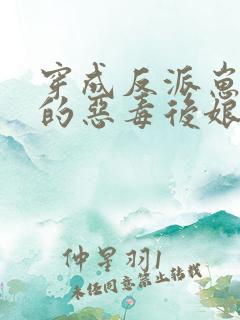 穿成反派崽
的惡毒後娘
仲星羽1
未经同意禁止转载